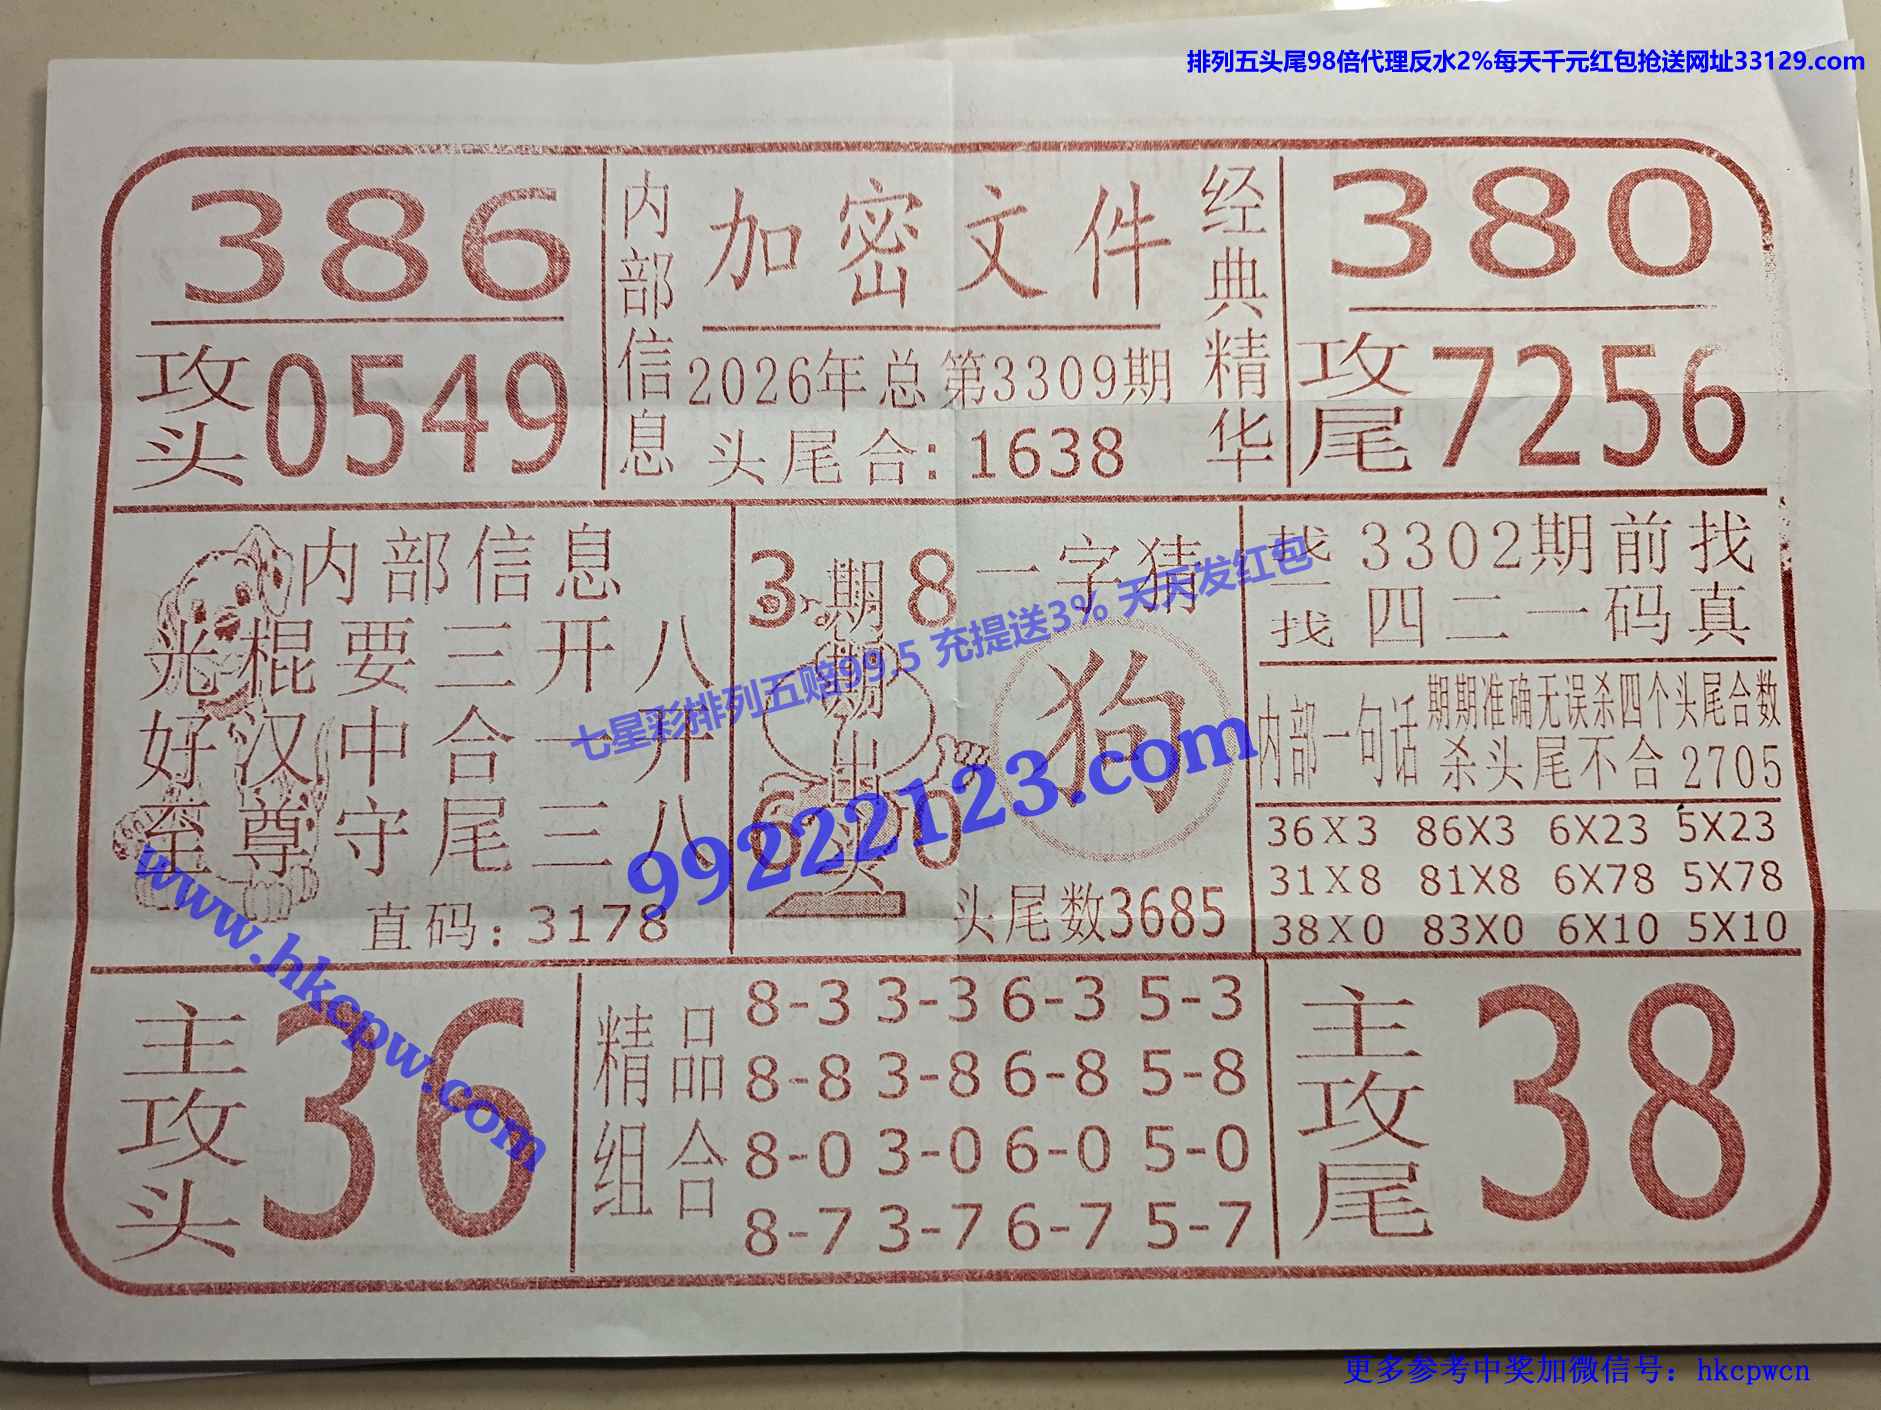 排列五头尾98倍代理反水2%每天千元红包抢送网址33129.com
386
攻头0549
内部信息
加密文件
2026年总第3309期
头尾合：1638
经典精华
380
攻尾7256
内部信息
光棍要三开八
好汉中合一开
至尊守尾三八
直码：3178
3期8
期
出
6头0
一字猜
狗
头尾数3685
找一找
3302期前找
四二一码真
内部一句话
期期准确无误杀四个头尾合数
杀头尾不合2705
36X3 86X3 6X23 5X23
31X8 81X8 6X78 5X78
38X0 83X0 6X10 5X10
七星彩排列五赔99.5 充提送3% 天天发红包
99222123.com
www.hkcpw.com
主攻头36
精品组合
8-3 3-3 6-3 5-3
8-8 3-8 6-8 5-8
8-0 3-0 6-0 5-0
8-7 3-7 6-7 5-7
主攻尾38
更多参考中奖加微信号：hkcpwcn